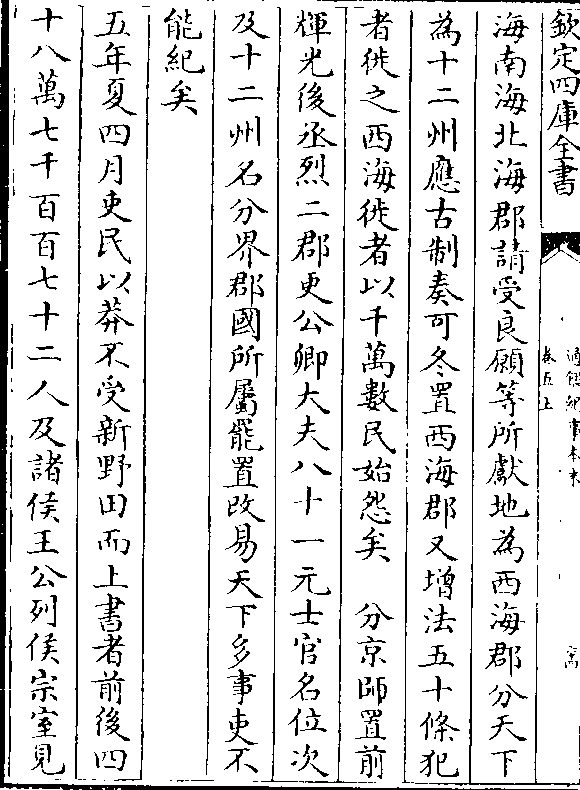 欽定四庫全書
通鑑紀事本末
卷五上
海南海北海郡請受良願等所獻地為西海郡分天下
為十二州應古制奏可冬置西海郡又增法五十條犯
者徙之西海徙者以千萬數民始怨矣　分京師置前
輝光後丞烈二郡更公卿大夫八十一元士官名位次
及十二州名分界郡國所屬罷置改易天下多事吏不
能紀矣
五年夏四月吏民以莽不受新野田而上書者前後四
十八萬七千百百七十二人及諸侯王公列侯宗室見